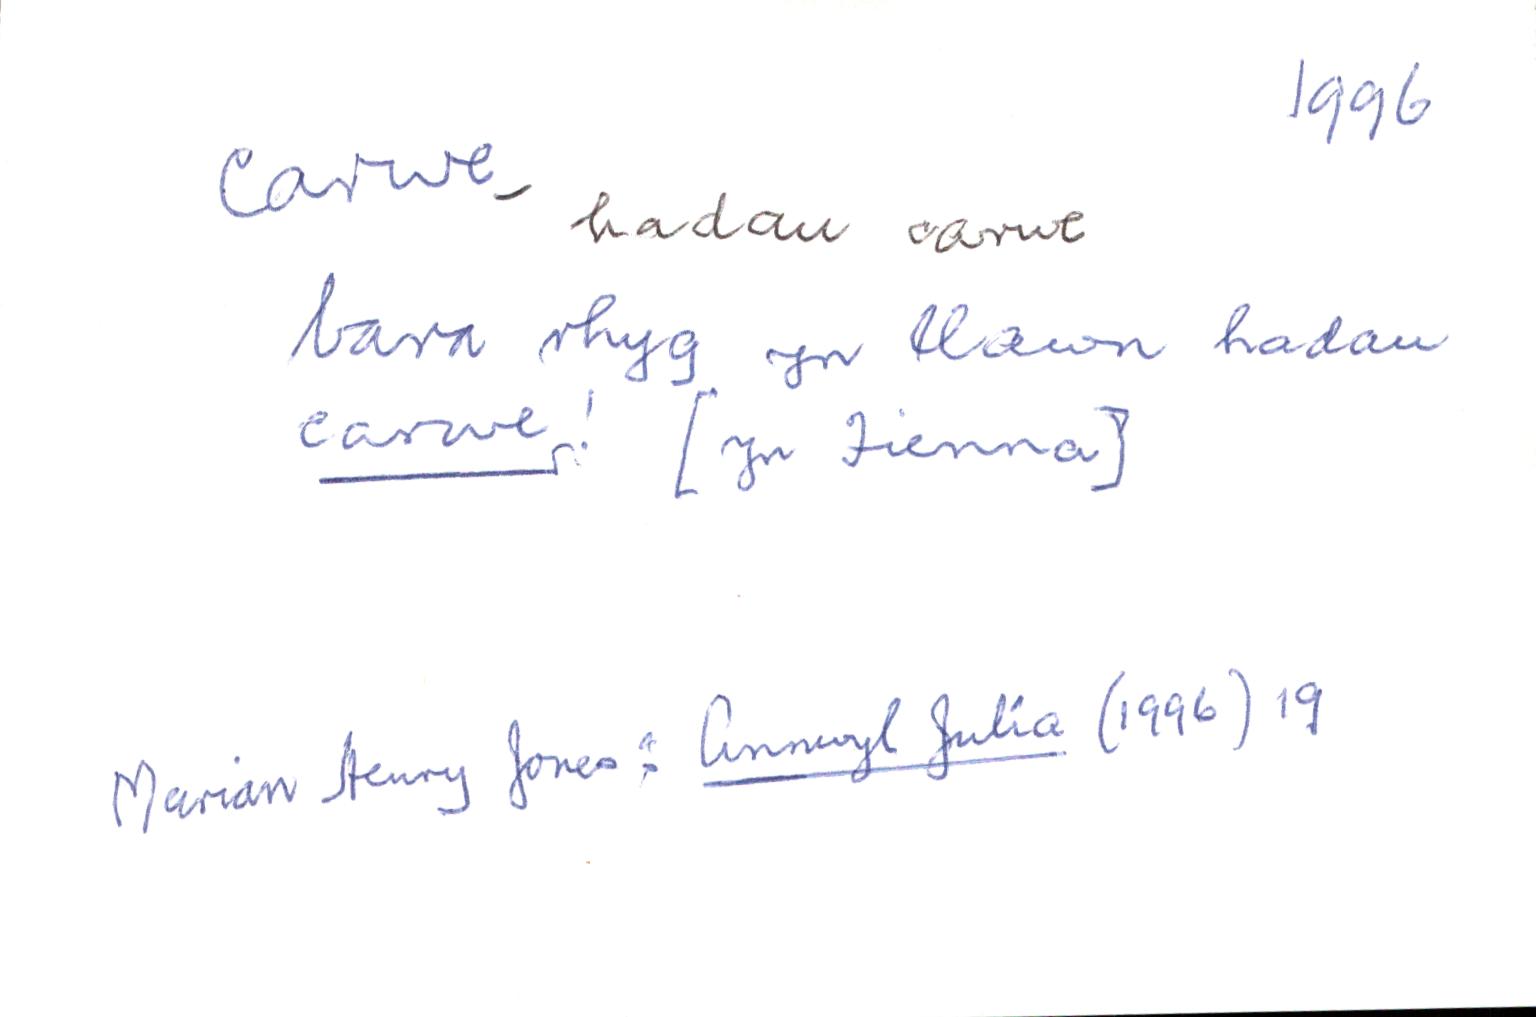 1996
carwe -
hadau carwe
bara rhyg yn llawn hadau
carwe! [yn Fienna]
Marian Henry Jones: Annwyl Julia (1996) 19